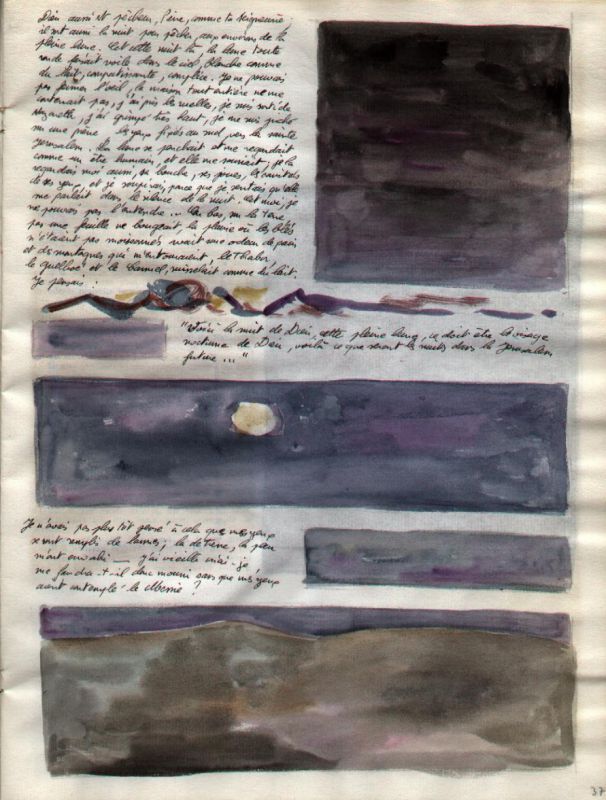 Dieu aussi est pêcheur, Père, comme ta Seigneurie,
il sort aussi la nuit pour pêcher, aux environs de la
pleine lune. Cette nuit là, la lune toute
ronde faisait voile dans le ciel, blanche comme
du lait, compatissante, complice. Je ne pouvais
pas fermer l'oeil, la maison tout entière ne me
contenait pas, j'ai pris les ruelles, je suis sorti de
Nazareth, j'ai grimpé très haut, je me suis juché
sur une pierre les yeux fixés au sud, vers la sainte
Jérusalem. La lune se penchait et me regardait
comme un être humain, et elle me souriait, je la
regardais moi aussi, sa bouche, ses joues, les
de ses yeux, et je soupirais, parce que je sentais qu'elle
me parlait dans le silence de la nuit, et moi, je
ne pouvais pas l'entendre... En bas sur la terre,
pas une feuille ne bougeait, la plaine où les blés
n'étaient pas moissonnés avait une odeur de pain
et des montagnes qui m'entouraient, le Thabor,
le Guelboé et le Carmel, ruisselait comme du lait.
Je pensais :
"Voici la nuit de Dieu, cette pleine lune, ce doit être le visage
nocturne de Dieu, voilà ce que seront les nuits dans la Jérusalem
future ..."
Je n'avais pas plus tôt pensé à cela que mes yeux
se sont remplis de larmes ; la détresse, la peur
m'ont envahi — j'ai vieilli criai-je
me faudra-t-il donc mourir sans que mes yeux
aient contemplé le Messie ?
37